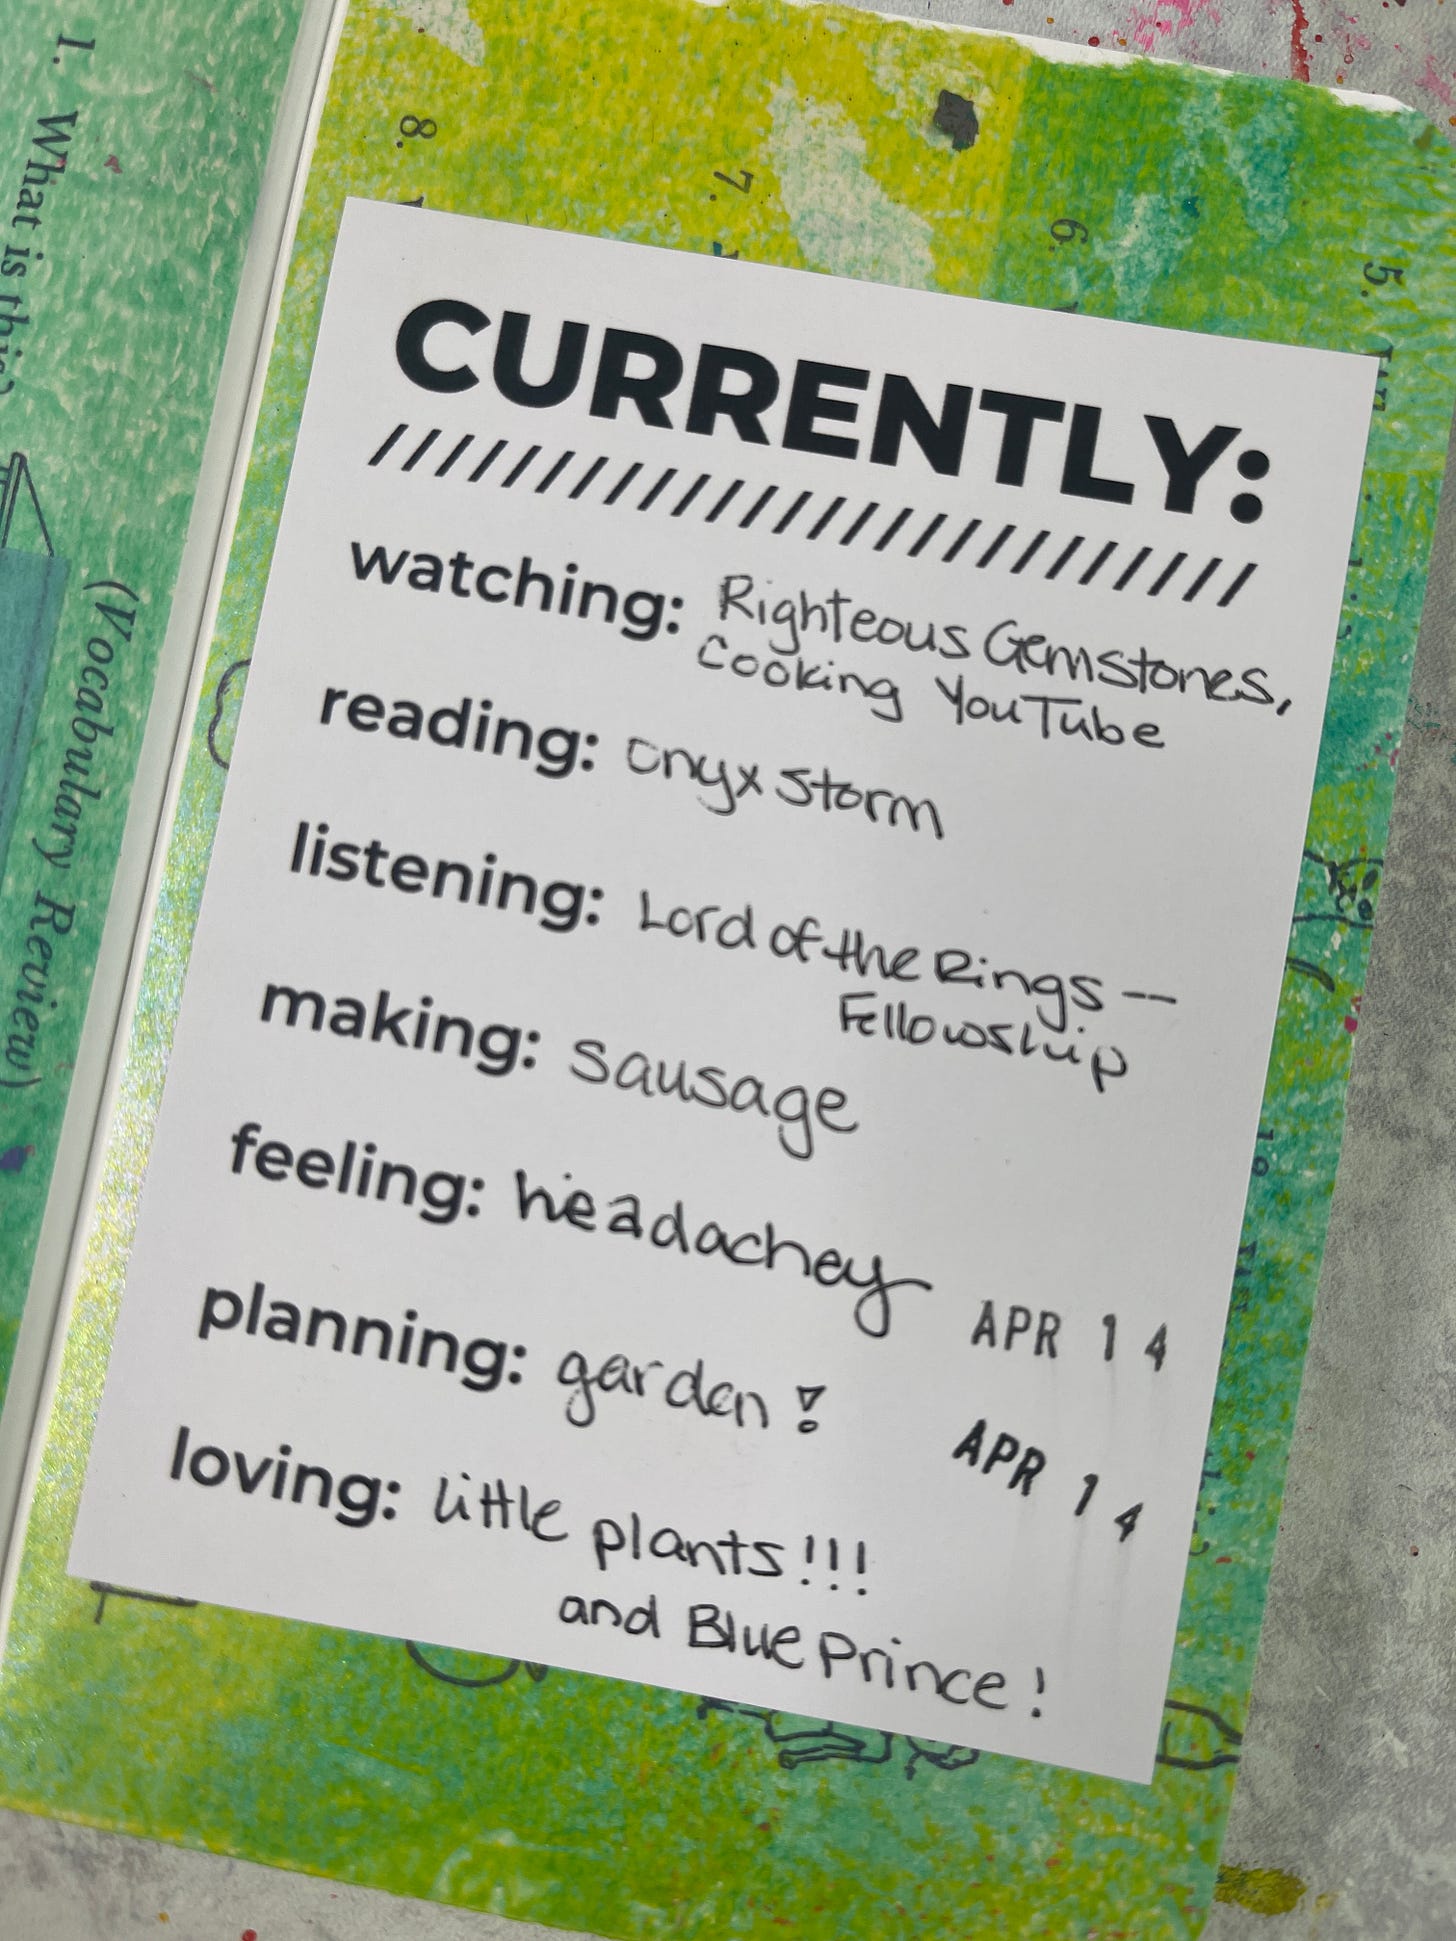 1. What is this?
(Vocabulary Review)
8.
7.
6.
5.
CURRENTLY:
////////////////////////////
watching: Righteous Gemstones,
Cooking YouTube
reading: Onyx Storm
listening: Lord of the Rings --
Fellowship
making: sausage
feeling: headachey
planning: garden!
loving: little plants!!!
and Blue Prince!
APR 14
APR 14